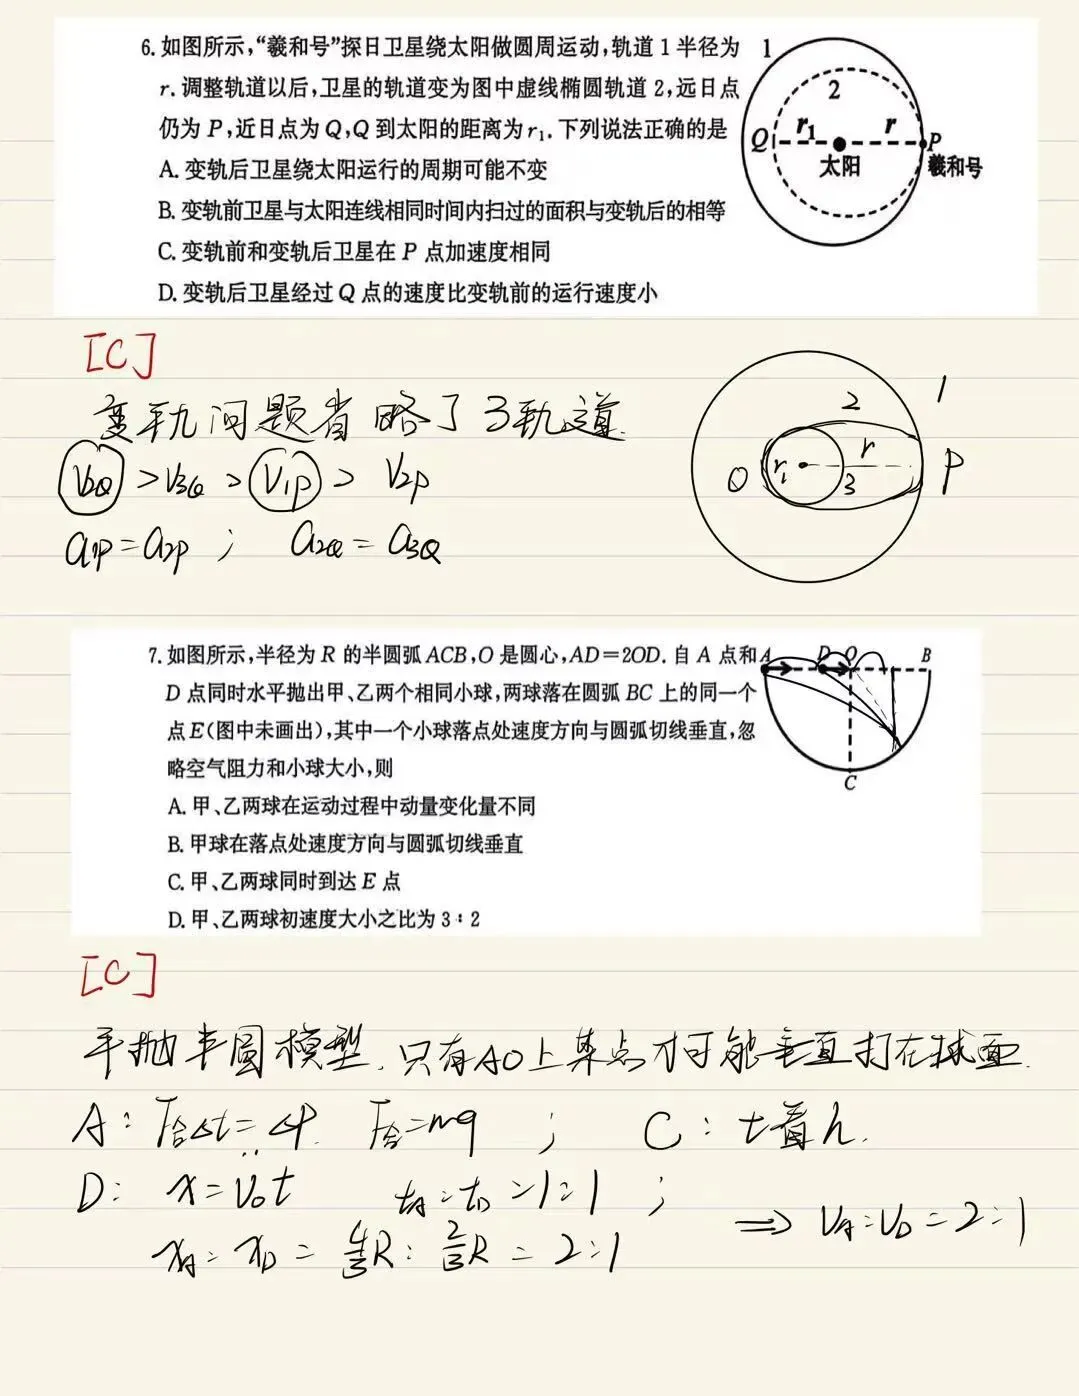 6. 如图所示,“羲和号”探日卫星绕太阳做圆周运动,轨道 1 半径为
r. 调整轨道以后,卫星的轨道变为图中虚线椭圆轨道 2,远日点
仍为 P,近日点为 Q,Q 到太阳的距离为 r₁. 下列说法正确的是
A. 变轨后卫星绕太阳运行的周期可能不变
B. 变轨前卫星与太阳连线相同时间内扫过的面积与变轨后的相等
C. 变轨前和变轨后卫星在 P 点加速度相同
D. 变轨后卫星经过 Q 点的速度比变轨前的运行速度小
1
2
Q r₁ r P
太阳 羲和号
[C]
变轨问题省略了3轨道.
V2Q > V3Q > V1P > V2P
a1P = a2P ; a2Q = a3Q
1
2
Q r₁ r P
3
7. 如图所示,半径为 R 的半圆弧 ACB,O 是圆心,AD=2OD. 自 A 点和
D 点同时水平抛出甲、乙两个相同小球,两球落在圆弧 BC 上的同一个
点 E(图中未画出),其中一个小球落点处速度方向与圆弧切线垂直,忽
略空气阻力和小球大小,则
A. 甲、乙两球在运动过程中动量变化量不同
B. 甲球在落点处速度方向与圆弧切线垂直
C. 甲、乙两球同时到达 E 点
D. 甲、乙两球初速度大小之比为 3∶2
A D O B
C
[C]
平抛半圆模型,只有AO上某点才可能垂直打在球面.
A: F合Δt = ΔP. F合=mg ; C: t看h.
D: x = V₀t tA : tD = 1:1 ;
xA : xD = 4/3R : 2/3R = 2:1
⇒ VA : VD = 2:1